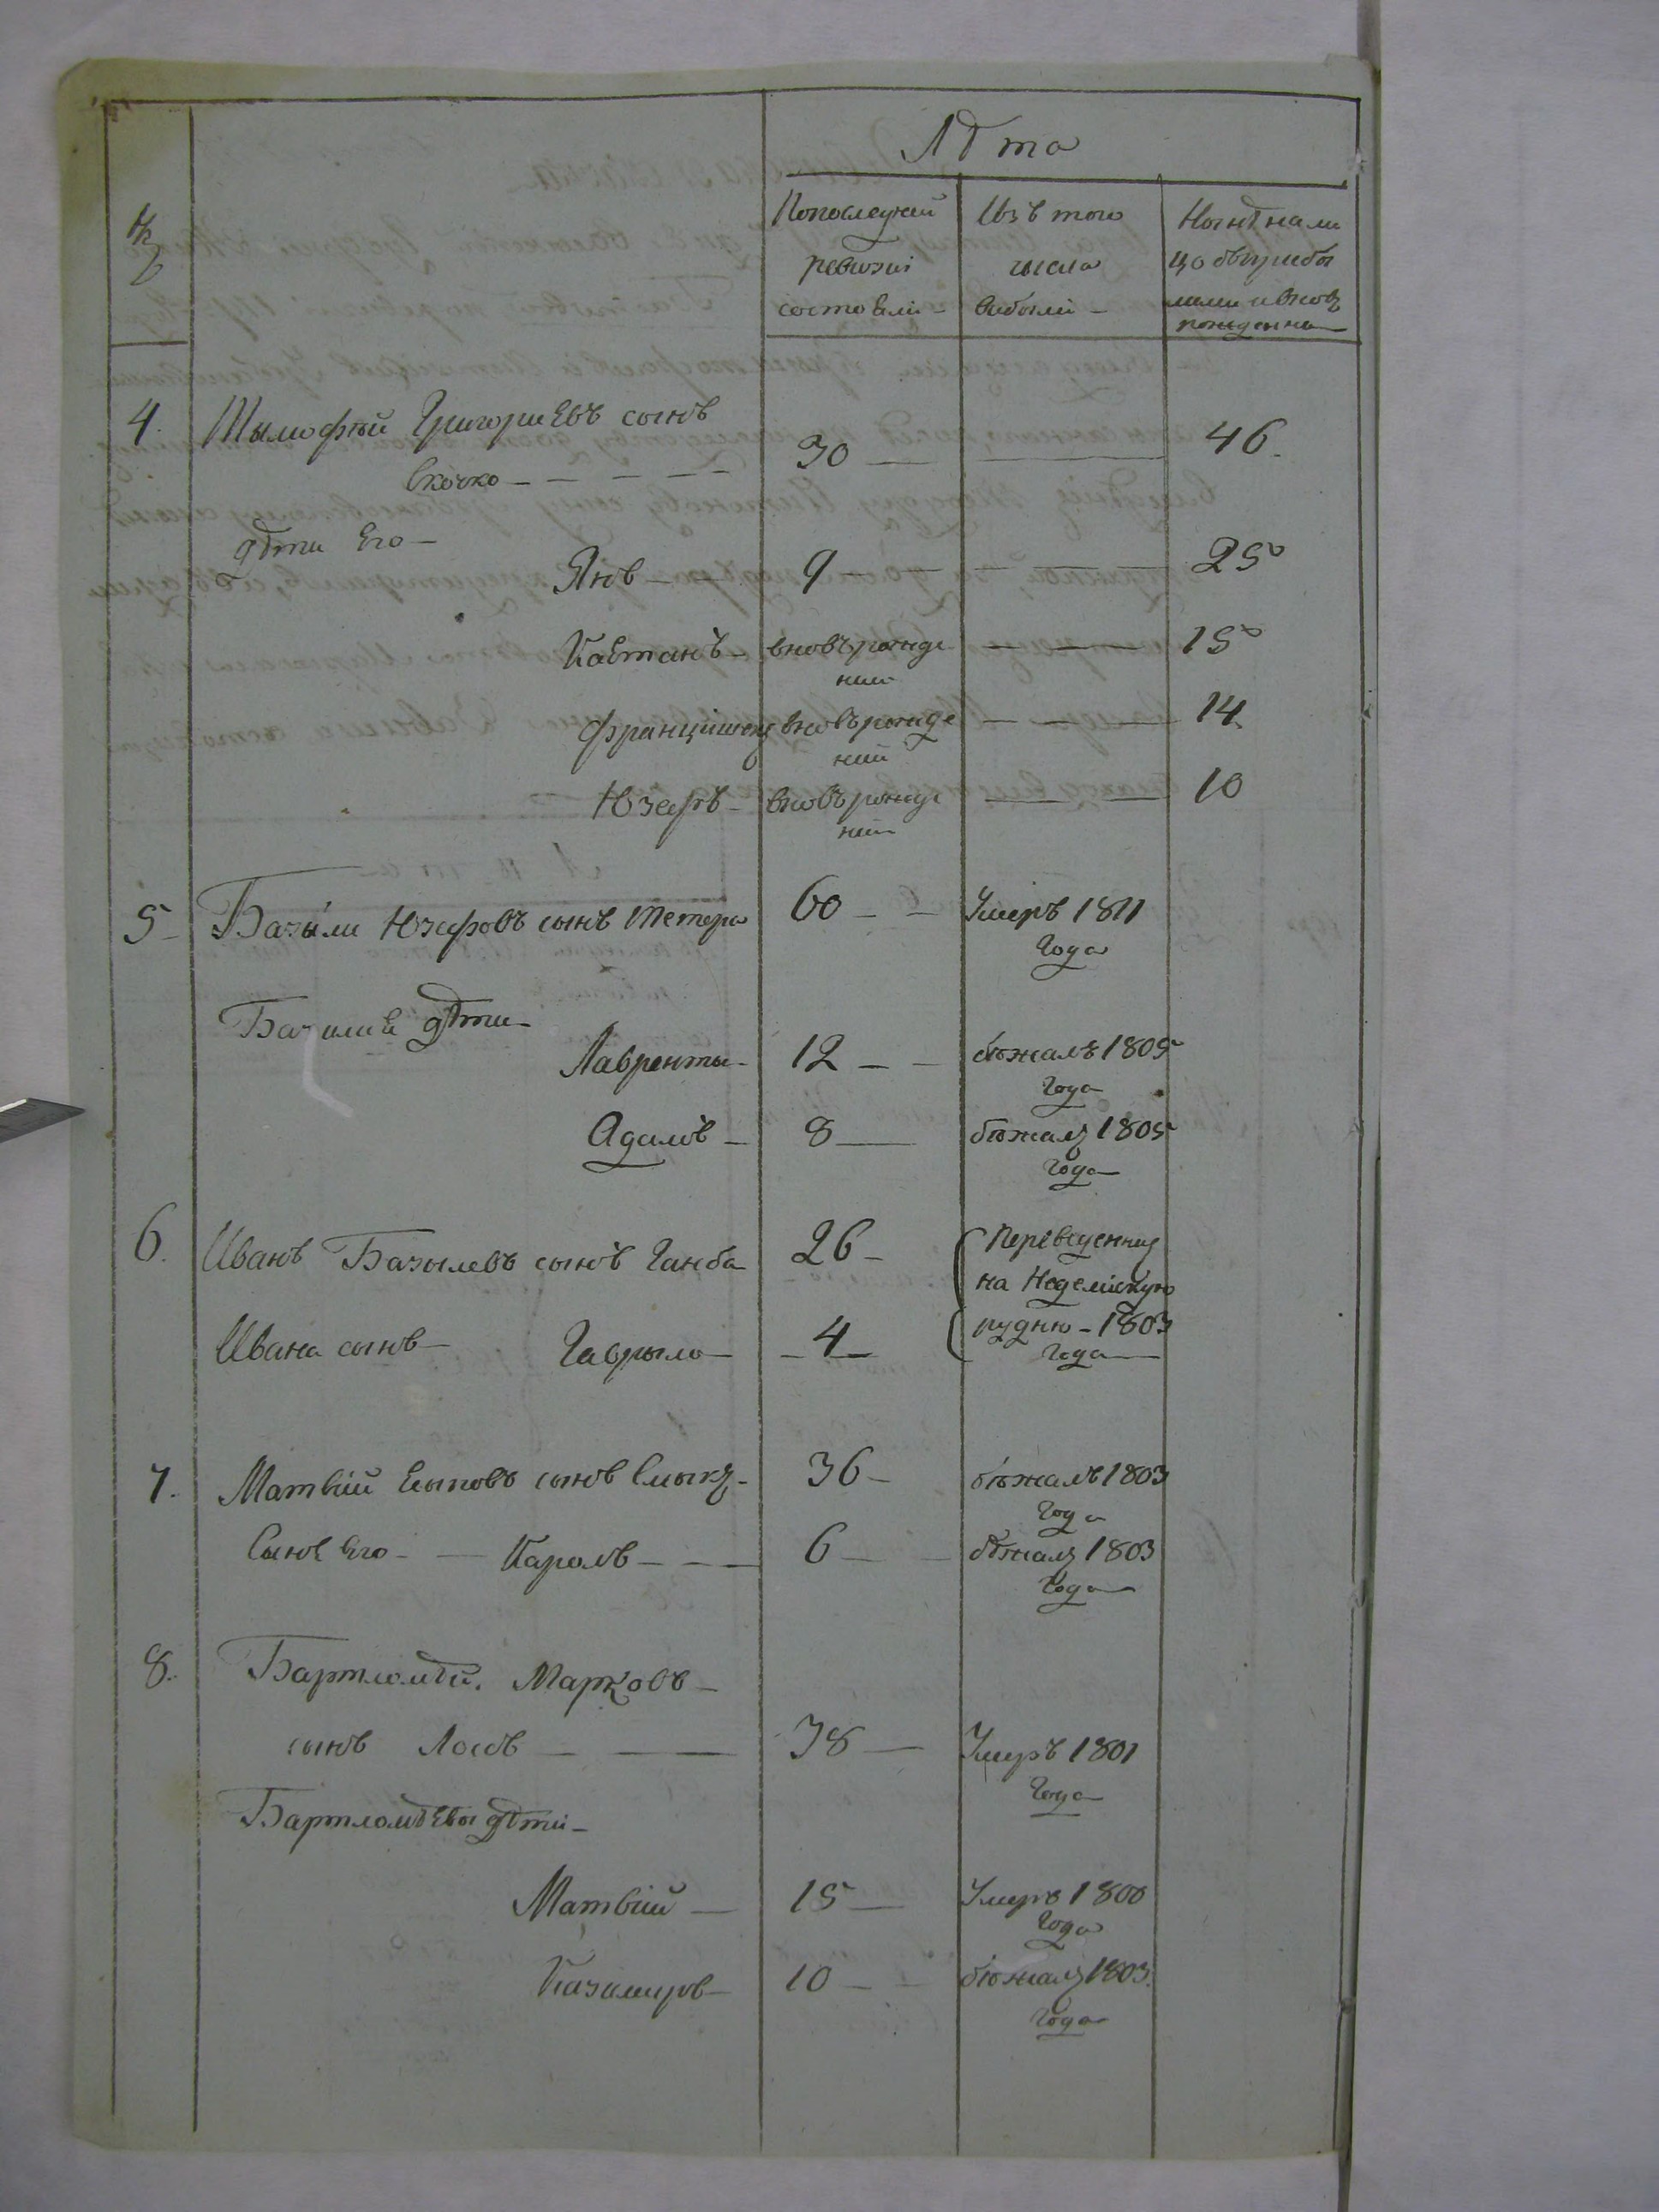 №
Лѣта
Попоследней
ревизіи
состояли -
Изъ того
числа
выбыли -
Нынѣ на ли
цо съ прибы
лыми и вновь
рожденна
4. Тымофѣй Григориевъ сынъ
Скочко - - - - 30 — — 46.
дѣти Его -
Янъ — 9 — — — 25
Каетанъ - вновърожде — — 15
ний
Францишекъ вновърожде — — 14
ний
Юзефъ - вновърожде — — 10
ний
5 - Базыли Юзефовъ сынъ Тетера 60 - - Умеръ 1811
Года
Базылия дѣти -
Лавренты - 12 - - бѣжалъ 1805
года
Адамъ - 8 — бѣжалъ 1805
года
6. Иванъ Базылевъ сынъ Ганба 26 - Переведенния
на Неделискую
Ивана сынъ - Гаврыло - - 4 - рудню - 1803
Года
7. Матвій Есыповъ сынъ Смыкъ - 36 - бѣжалъ 1803
Года
Сынъ Его - — Кароль - - - 6 - - бѣжалъ 1803
Года
8. Бартломѣй. Марковъ -
сынъ Лосъ - — 38 — Умеръ 1801
Года
Бартломѣевы дѣти -
Матвій — 15 — Умеръ 1800
Года
Казимиръ - 10 - - бѣжалъ 1803.
Года